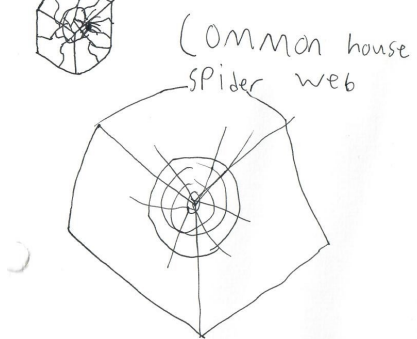 Common house
spider web